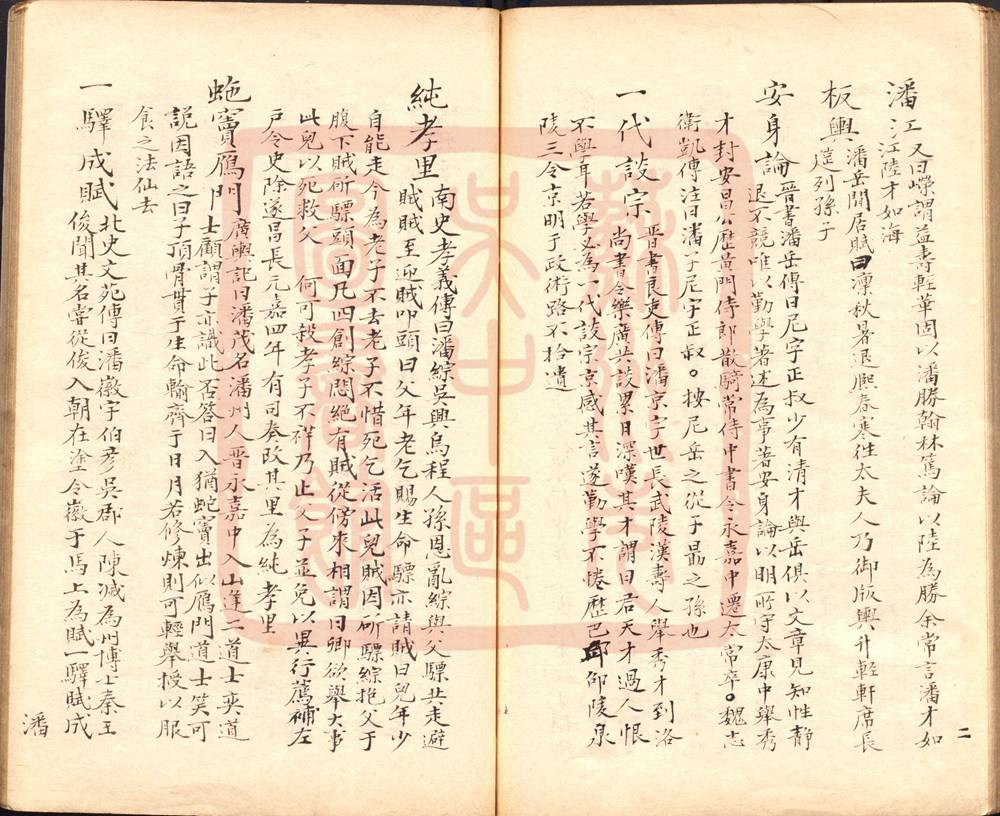 潘江又曰嶸謂益壽輕華固以潘勝翰林篤論以陸為勝余常言潘才如
江陸才如海
板輿潘岳閒居賦曰凜秋暑退熙春寒往太夫人乃御版輿升輕軒席長
筵列孫子
安身論晉書潘岳傳曰尼字正叔少有清才與岳俱以文章見知性静
退不競唯以勤學著述為事著安身論以明所守太康中舉秀
才封安昌公歷黄門侍郎散騎常侍中書令永嘉中遷太常卒。魏志
衛凱傳注曰潘子尼字正叔。按尼岳之從子勗之孫也
一代談宗晉書良吏傳曰潘京字世長武陵漢壽人舉秀才到洛
尚書令樂廣共談累日深嘆其才謂曰君天才過人恨
不學耳若學必為一代談宗京感其言遂勤學不倦歷巴邱邵陵泉
陵三令京明于政術路不拾遺
純孝里南史孝義傳曰潘綜吳興烏程人孫恩亂綜與父驃共走避
賊賊至迎賊叩頭曰父年老乞賜生命驃亦請賊曰兒年少
自能走今為老子不去老子不惜死乞活此兒賊因斫驃綜抱父于
腹下賊斫驃頭面凡四創綜悶絶有賊從傍來相謂曰卿欲舉大事
此兒以死救父 何可殺孝子不祥乃止父子並免以異行薦補左
戶令史除遂昌長元嘉四年有司奏改其里為純孝里
虵竇鴈門廣輿記曰潘茂名潘州人晋永嘉中入山逢二道士奕道
士顧謂子亦識此否答曰入猶蛇竇出似鴈門道士笑可
説因語之曰子頂骨貫于生命輸齊于日月若修煉則可輕舉授以服
食之法仙去
一驛成賦北史文苑傳曰潘徽字伯彦吳郡人陳滅為州博士秦王
俊聞其名嘗從俊入朝在塗令徽于馬上為賦一驛賦成
二
潘